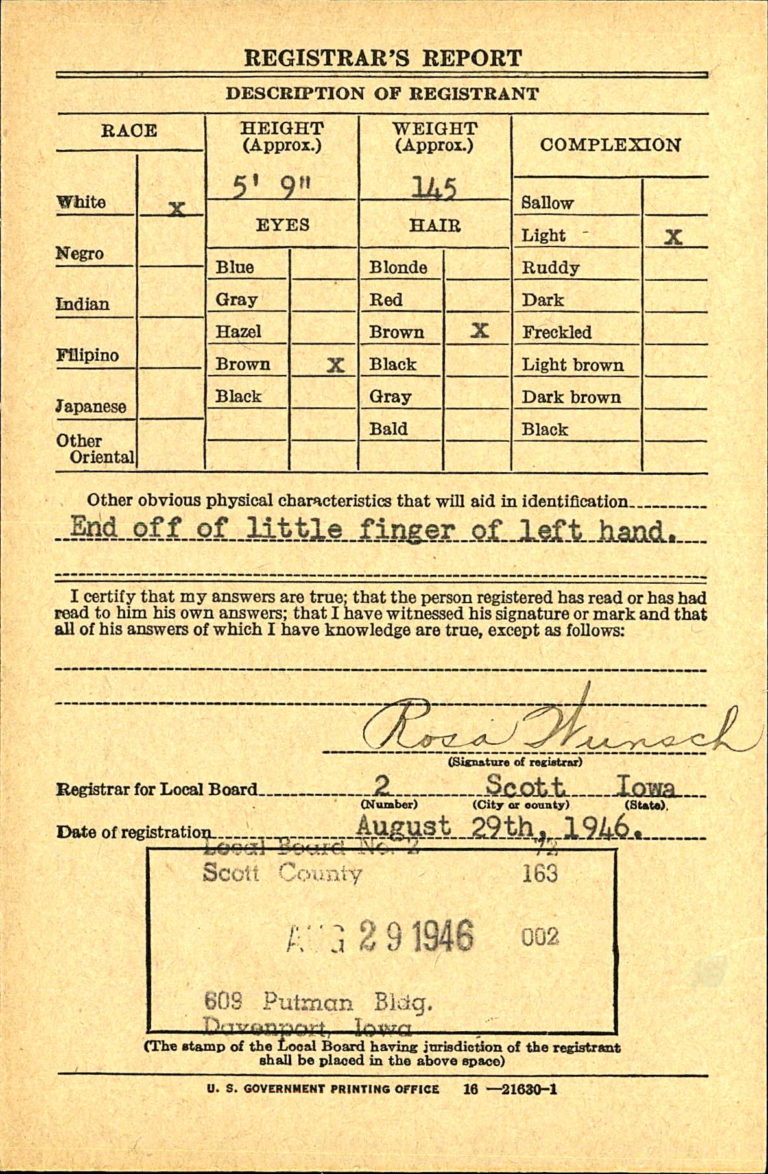 REGISTRAR'S REPORT
DESCRIPTION OF REGISTRANT
RACE
HEIGHT
(Approx.)
WEIGHT
(Approx.)
COMPLEXION
5' 9"
145
White x
Sallow
EYES
HAIR
Light - x
Negro
Blue
Blonde
Ruddy
Indian
Gray
Red
Dark
Hazel
Brown x
Freckled
Filipino
Brown x
Black
Light brown
Japanese
Black
Gray
Dark brown
Other
Oriental
Bald
Black
Other obvious physical characteristics that will aid in identification
End off of little finger of left hand.
I certify that my answers are true; that the person registered has read or has had
read to him his own answers; that I have witnessed his signature or mark and that
all of his answers of which I have knowledge are true, except as follows:
Rosa Wunsch
(Signature of registrar)
Registrar for Local Board 2 Scott Iowa
(Number) (City or county) (State)
Date of registration August 29th, 1946.
Local Board No. 2 72
Scott County 163
AUG 29 1946 002
609 Putman Bldg.
Davenport, Iowa
(The stamp of the Local Board having jurisdiction of the registrant
shall be placed in the above space)
U. S. GOVERNMENT PRINTING OFFICE 16—21630-1